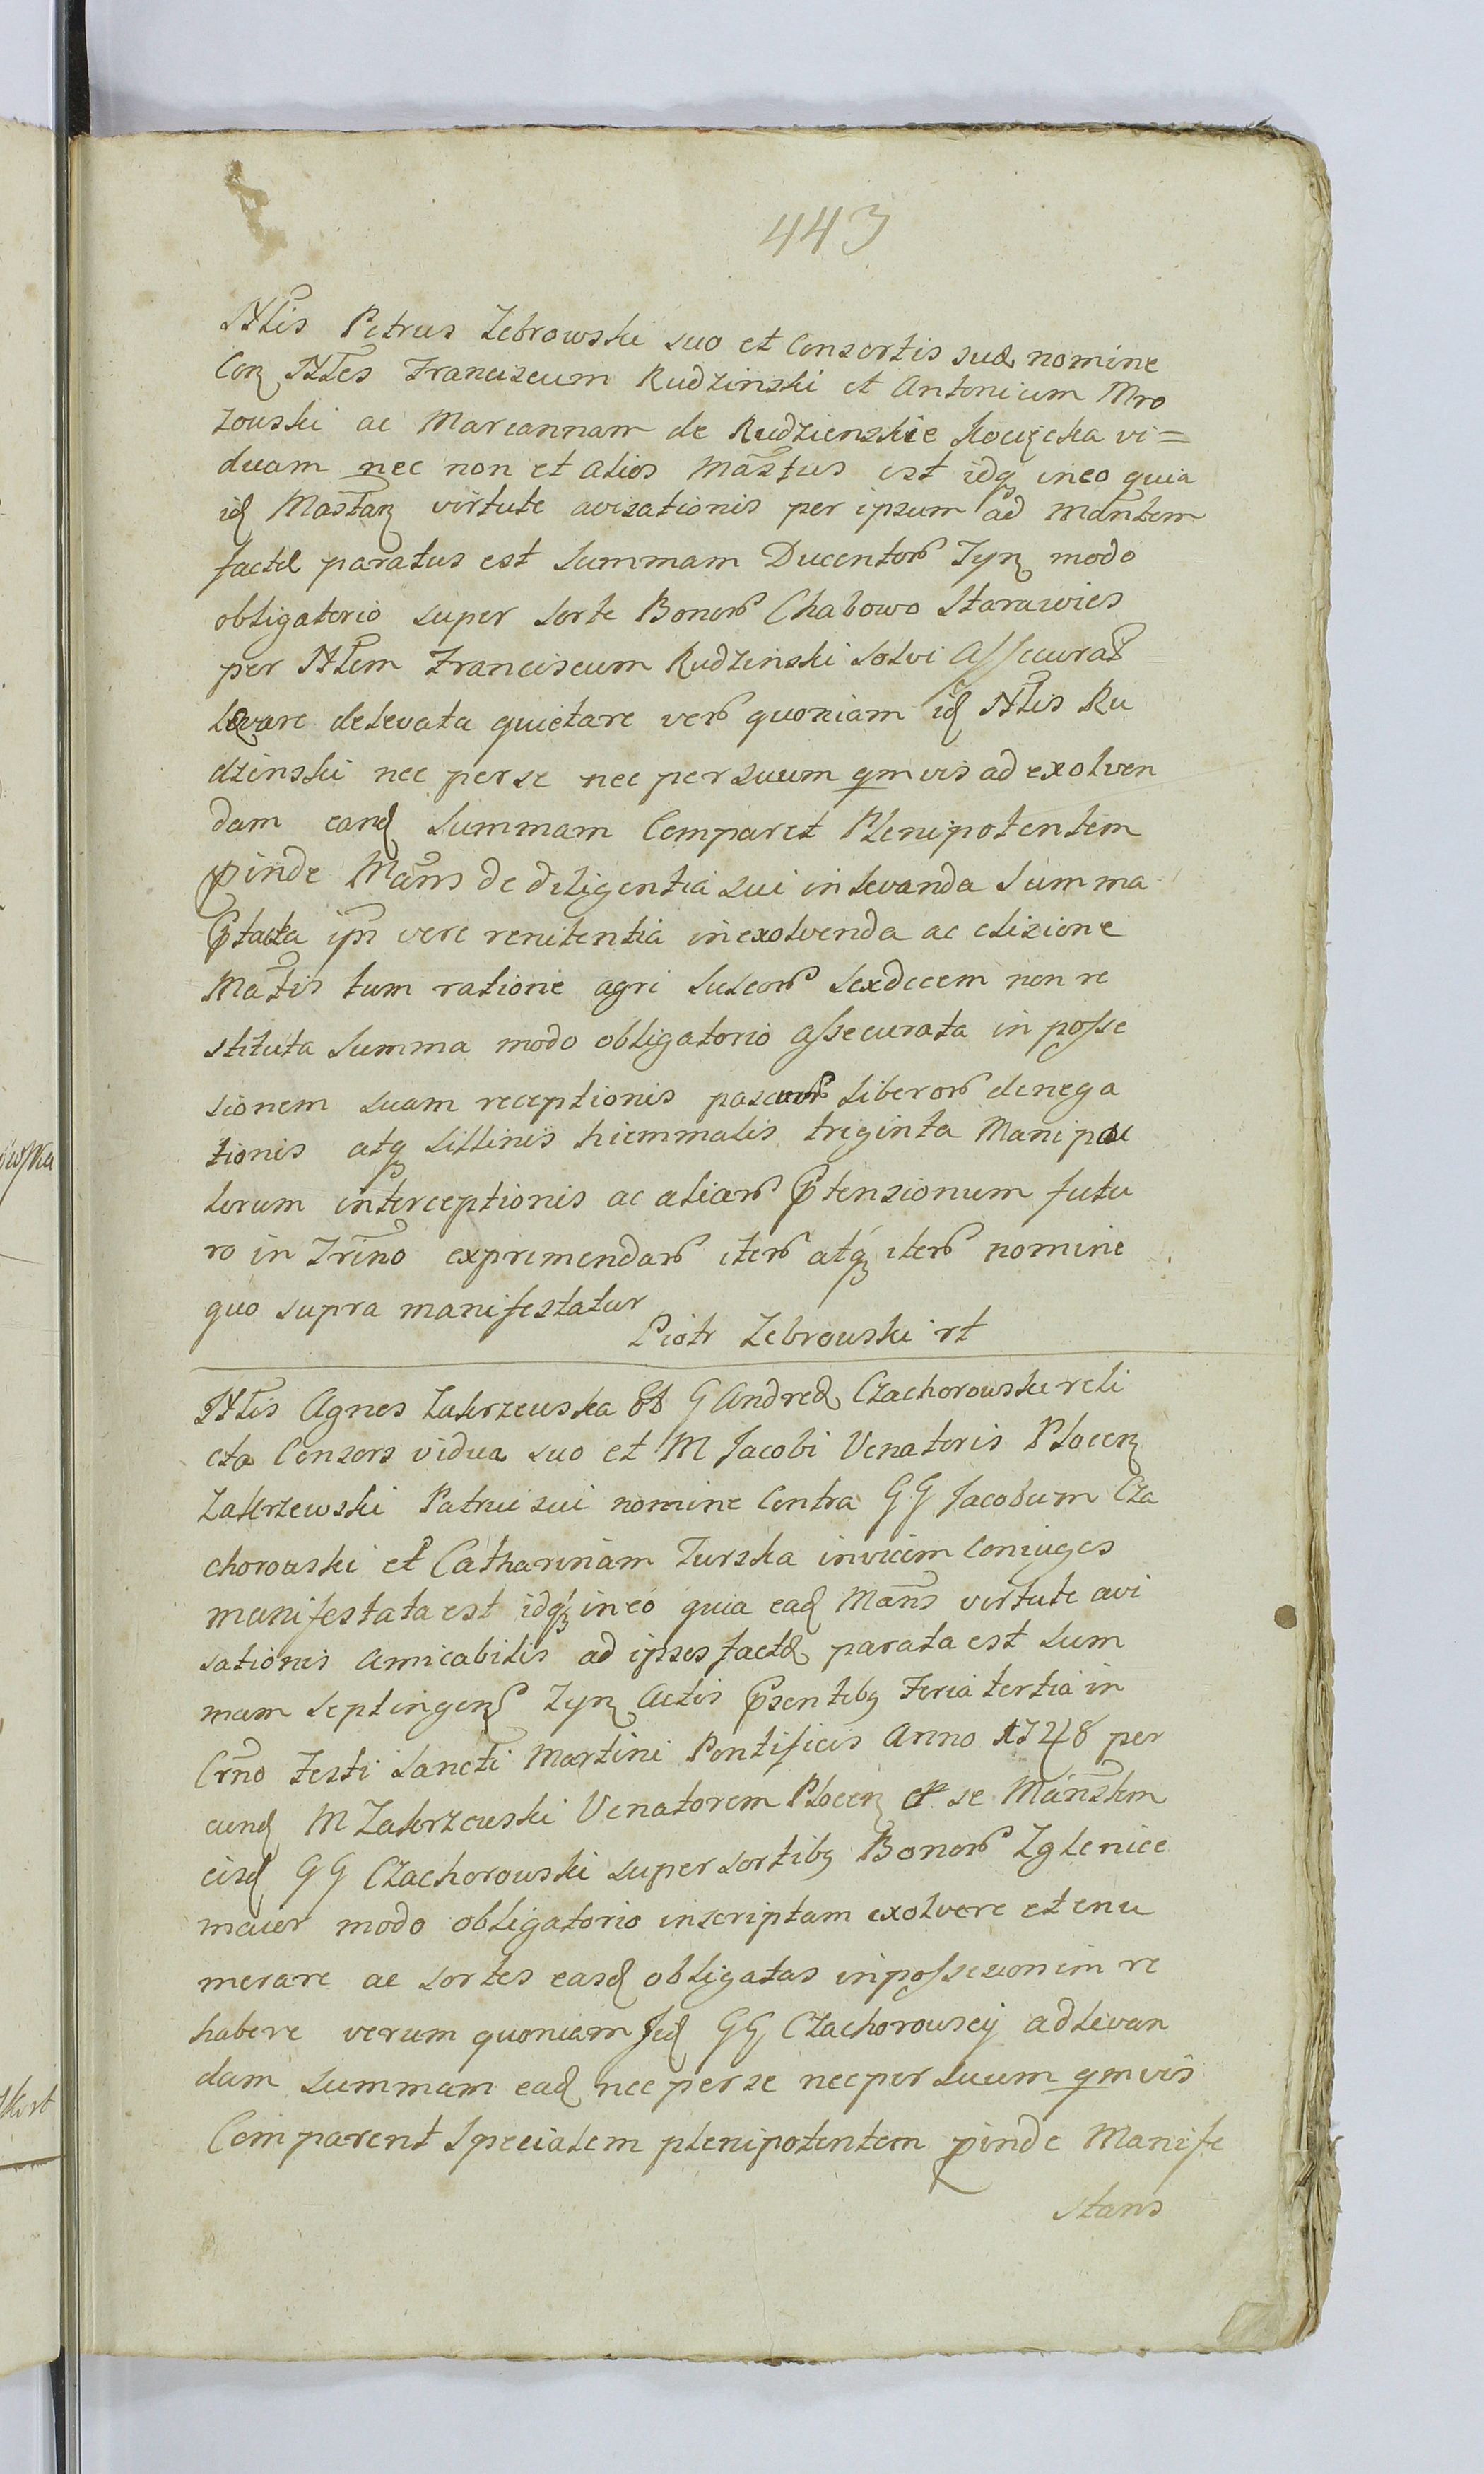 443
Nlis Petrus Zebrowski suo et Consortis suæ nomine
Con Nles Franciscum Rudzinski et Antonium Mro
zouski ac Mariannam de Rudzienskie vi=
duam nec non et alios Mastus est idq ineo quia
id Mastan virtute avisationis per ipsum ad Mantem
factæ paratus est Summam Ducentor Tyn modo
obligatorio super sorte Bonor Chabowo Starawies
per Nlem Franciscum Rudzinski solvi Assecurat
levare delevata quietare vero quoniam id Nlis Ru
dzinski nec per se nec per suum qmvis ad exolven
dam eand Summam Comparet Plenipotentem
pinde Mans de diligentia sui in levanda Summa
ptacta ipn vere renitentia inexolvenda ac elisione
Matis tum ratione agri sulcor sexdecem non re
stituta Summa modo obligatorio assecurata in posse
sionem suam receptionis pascuor liberor denega
tionis atq siliinis hiemmalis triginta Manipu
lorum interceptionis ac aliar Ptensionum futu
ro in Trino exprimendar iter atq iter nomine
quo supra manifestatur
Piotr Zebrouski rt
Nlis Agnes Zakrzeuska G Andreæ Czachorouski reli
cta Consors vidua suo et M Jacobi Venatoris Plocen
Zakrzewski Patrui sui nomine Contra GG Jacobum Cza
chorouski et Catharinam Turska invicem Coniuges
manifestata est idq ineo quia ead Mans virtute avi
sationis Amicabilis ad ipsos factæ parata est sum
mam septingen Tyn Actis Psentibq Feria tertia in
Crno Festi Sancti Martini Pontificis Anno 1748 per
eund M Zakrzeuski Venatorem Plocen et se Manstem
eisd GG Czachorouski super sortibq Bonor Zglenice
maior modo obligatorio inscriptam exolvere et enu
merare ac sortes easd obligatas inpossesionem re
habere verum quoniam Jid GG Czachorouscy ad levan
dam summam ead nec per se nec per suum qmvis
Comparent Specialem plenipotentem pinde Manife
stans